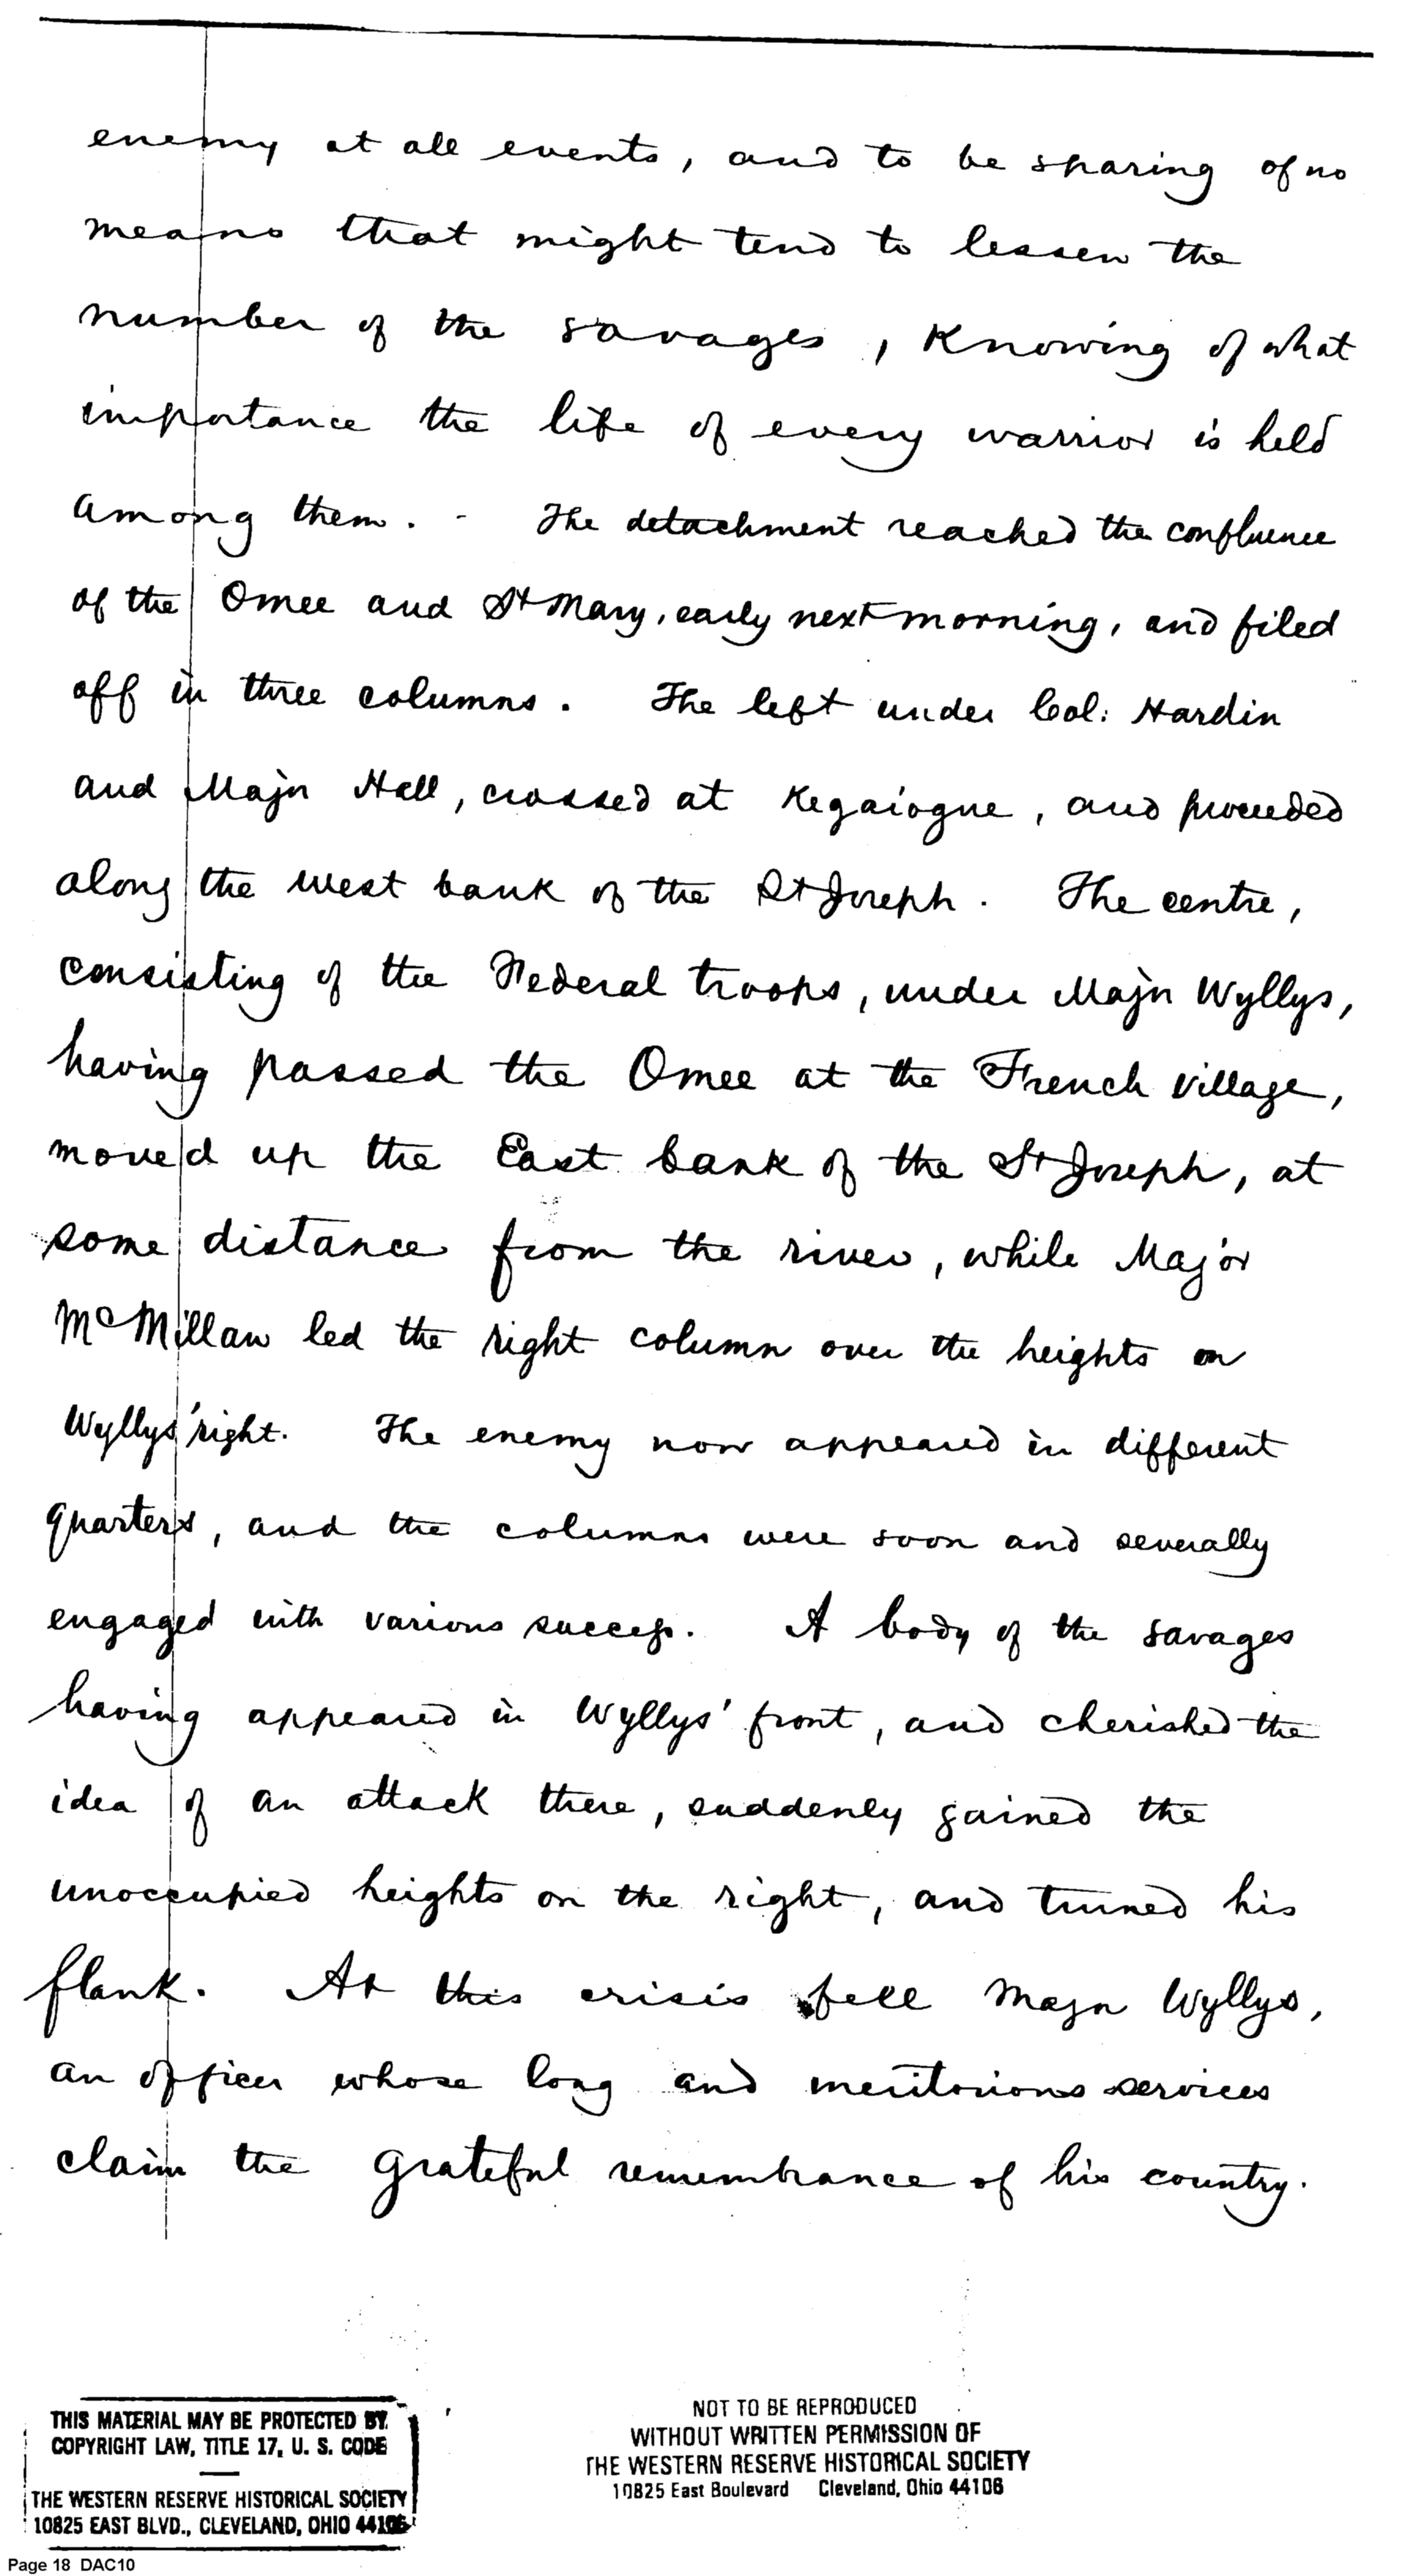 enemy at all events, and to be sparing of no
means that might tend to lessen the
number of the savages, Knowing of what
importance the life of every warrior is held
among them. - The detachment reached the confluence
of the Omee and St Mary, early next morning, and filed
off in three columns. The left under Col: Hardin
and Major Hall, crossed at Kegaiogue, and proceeded
along the west bank of the St Joseph. The centre,
consisting of the Federal troops, under Major Wyllys,
having passed the Omee at the French village,
moved up the East bank of the St Joseph, at
some distance from the river, while Major
McMillan led the right column over the heights on
Wyllys' right. The enemy now appeared in different
quarters, and the columns were soon and severally
engaged with various success. A body of the savages
having appeared in Wyllys' front, and cherished the
idea of an attack there, suddenly gained the
unoccupied heights on the right, and turned his
flank. At this crisis fell Major Wyllys,
an officer whose long and meritorious services
claim the grateful remembrance of his country.
THIS MATERIAL MAY BE PROTECTED BY
COPYRIGHT LAW, TITLE 17, U. S. CODE
THE WESTERN RESERVE HISTORICAL SOCIETY
10825 EAST BLVD., CLEVELAND, OHIO 44106
NOT TO BE REPRODUCED
WITHOUT WRITTEN PERMISSION OF
THE WESTERN RESERVE HISTORICAL SOCIETY
10825 East Boulevard Cleveland, Ohio 44106
Page 18 DAC10